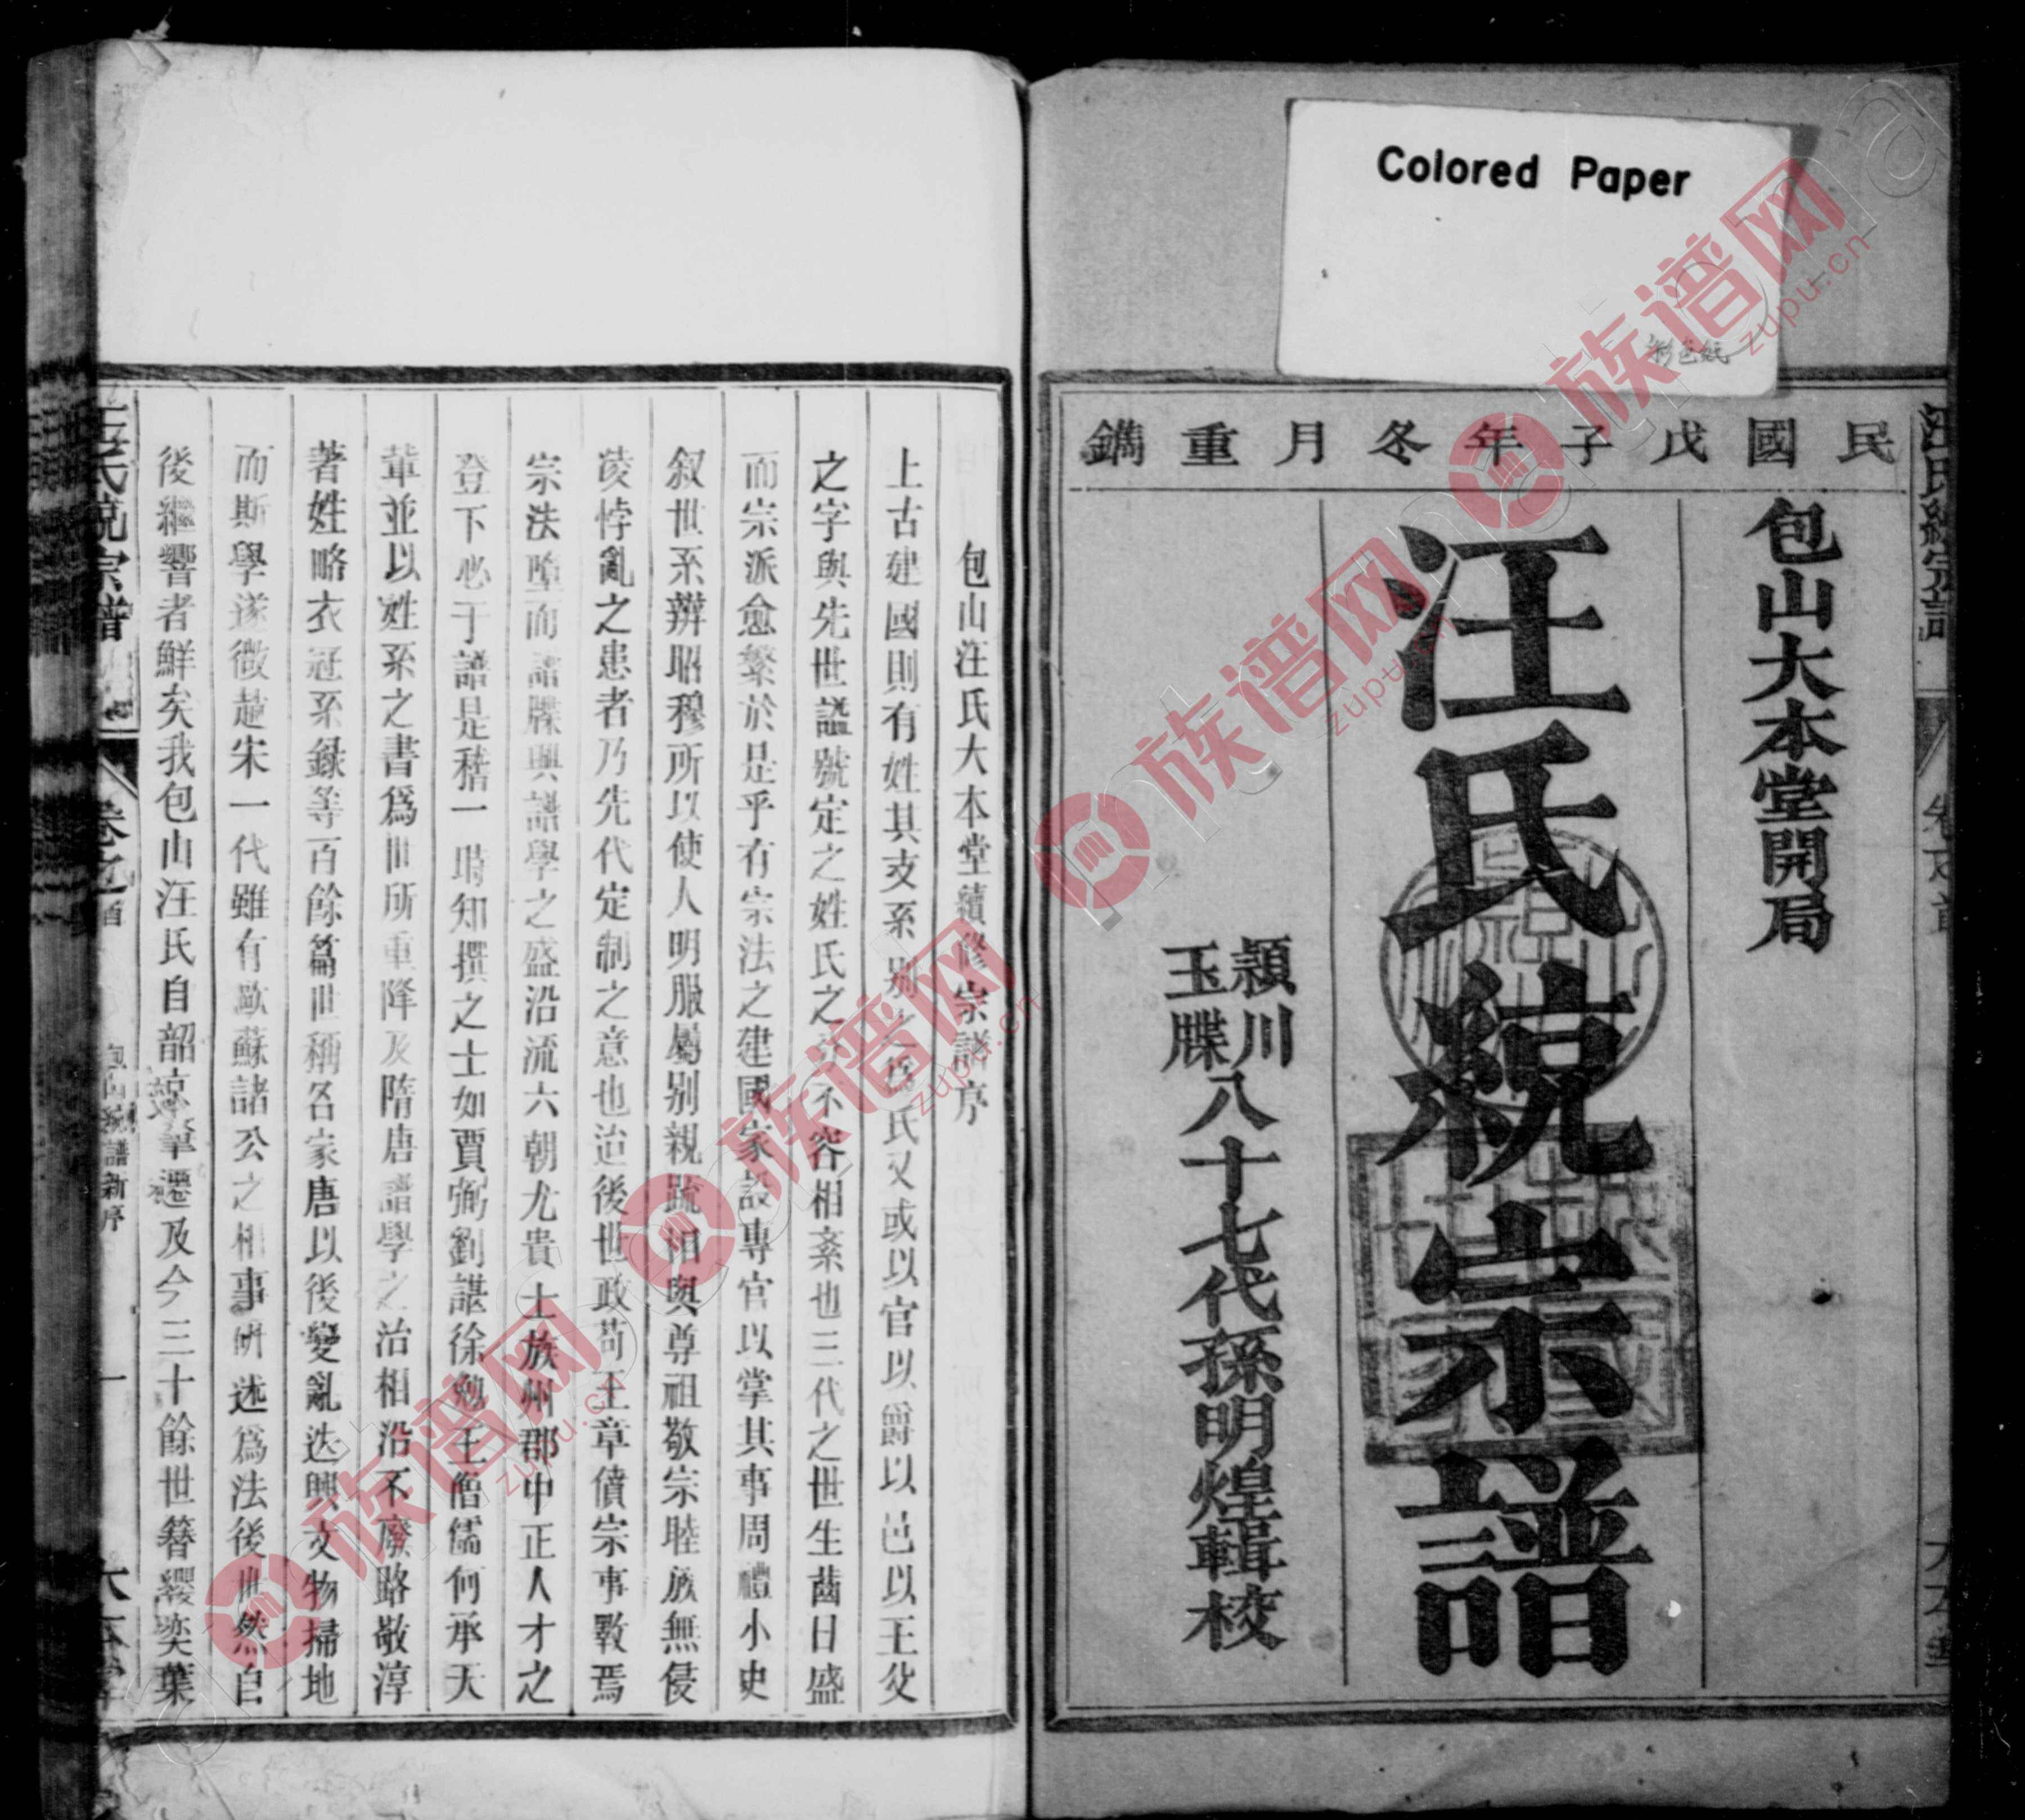 Colored Paper
彩色紙
民國戊子年冬月重鐫
包山大本堂開局
汪氏統宗譜
潁川
玉牒
八十七代孫明煌輯校
汪氏統宗譜
包山汪氏大本堂續修宗譜序
上古建國則有姓其支系別之爲氏又或以官以爵以邑以王父
之字與先世諡號定之姓氏之不容相紊也三代之世生齒日盛
而宗派愈繁於是乎有宗法之建國家設專官以掌其事周禮小史
叙世系辨昭穆所以使人明服屬别親疏相與尊祖敬宗睦族無侵
淩悖亂之患者乃先代定制之意也迨後世政苟王章僨宗事斁焉
宗法墮而譜牒興譜學之盛沿流六朝尤貴士族州郡中正人才之
登下必于譜是稽一時知撰之士如賈弼劉諶徐勉王僧儒何承天
輩並以姓系之書爲世所重降及隋唐譜學之治相沿不廢路敬淳
著姓略衣冠系録等百餘篇世稱名家唐以後變亂迭興文物掃地
而斯學遂微趙宋一代雖有歐蘇諸公之相事研述爲法後世然自
後繼響者鮮矣我包山汪氏自韶京肇遷及今三十餘世簪纓奕葉
汪氏統宗譜
卷之首
包山統譜新序
一
大本堂
族谱网
zupu.cn